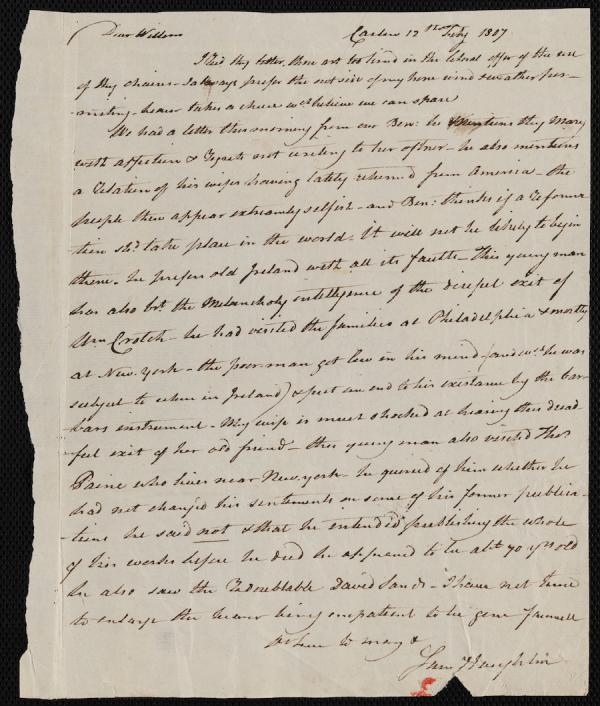 Dear William Carlow 12th of Feby 1807
I recd thy letter, thou art too kind in the liberal offer of the use
of thy chaise - I always prefer the outside of my horse wind & weather per-
-miting - bearer takes a chaise wch believe we can spare
We had a letter this morning from our Ben: he mentions thy Mary
with affection & regrets not writing to her oftner - he also mentions
a relation of his wifes having lately returned from America - the
people there appear extreamly selfish - and Ben: thinks if a reforma
tion shd. take place in the world - it will not be likely to begin
there. he prefers old Ireland with all its faults - This young man
has also bt. the Melancholy intelligence of the direful exit of
Wm Crotch - he had visited the families at Philadelphia & mostly
at New-york - the poor man got low in his mind (and wch he was
subject to when in Ireland) & put an end to his existance by the bar-
bars instrument. My wife is much shocked at hearing this dread
ful exit of her old friend - this young man also visited Thos
Paine who lives near New-york - he queried of him whether he
had not changed his sentiments on some of his former publica-
tions he said not & that he intended publishing the whole
of his works before he died he appeared to be abt 70 yrs old
he also saw the redoubtable David Sands - I have not time
to enlarge the bearer being impatient to be gone farewell
Saml Haughton